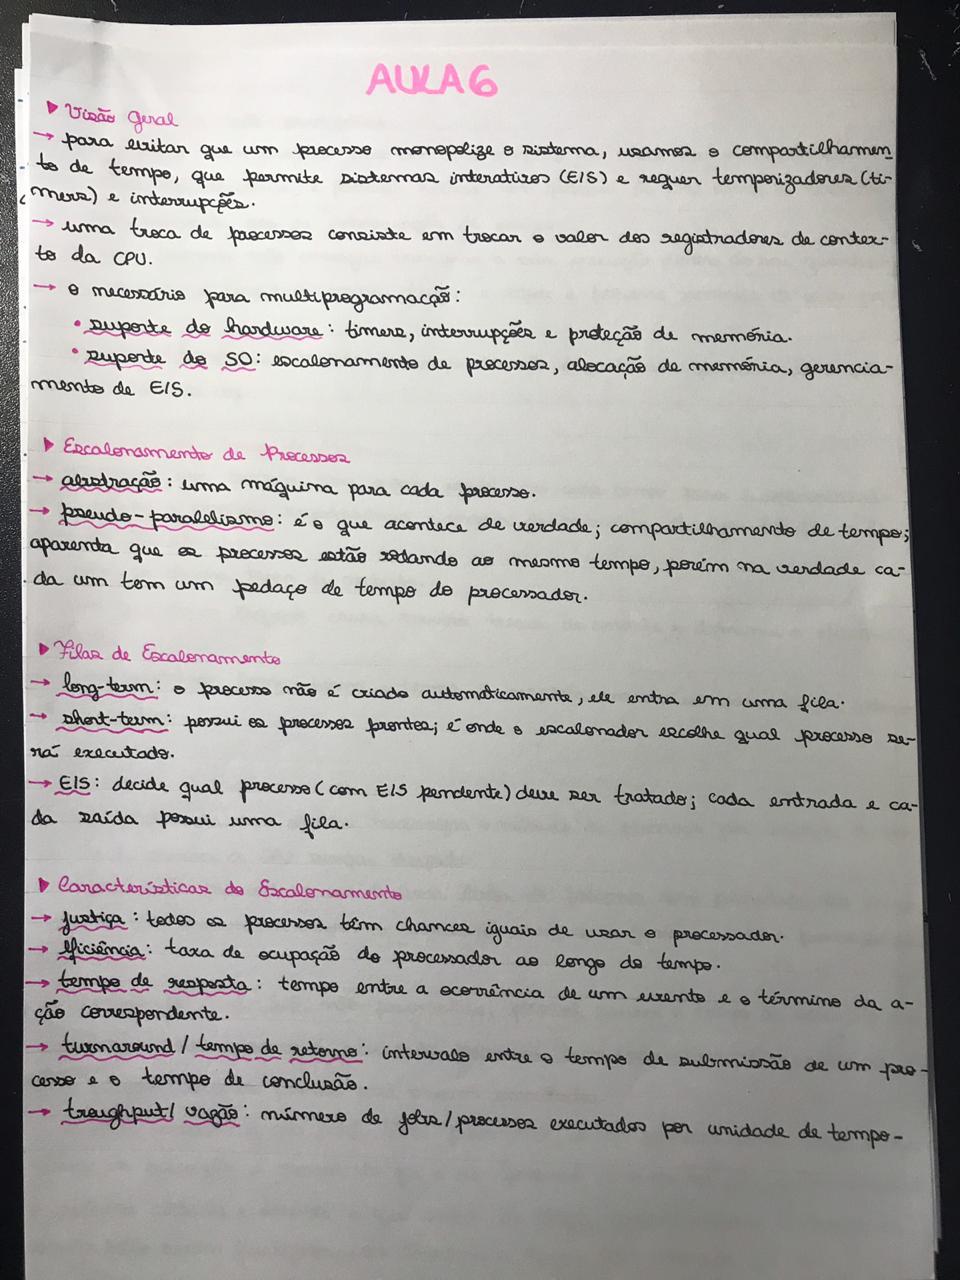 AULA 6
▶ Visão Geral
→ para evitar que um processo monopolize o sistema, usamos o compartilhamen
to de tempo, que permite sistemas interativos (E/S) e requer temporizadores (ti-
mers) e interrupções.
→ uma troca de processos consiste em trocar o valor dos registradores de contex-
to da CPU.
→ o necessário para multiprogramação:
• suporte do hardware: timers, interrupções e proteção de memória.
• suporte do SO: escalonamento de processos, alocação de memória, gerencia-
mento de E/S.
▶ Escalonamento de Processos
→ abstração: uma máquina para cada processo.
→ pseudo-paralelismo: é o que acontece de verdade; compartilhamento de tempo;
aparenta que os processos estão rodando ao mesmo tempo, porém na verdade ca-
da um tem um pedaço de tempo do processador.
▶ Filas de Escalonamento
→ long-term: o processo não é criado automaticamente, ele entra em uma fila.
→ short-term: possui os processos prontos; é onde o escalonador escolhe qual processo se-
rá executado.
→ E/S: decide qual processo (com E/S pendente) deve ser tratado; cada entrada e ca-
da saída possui uma fila.
▶ Características do Escalonamento
→ justiça: todos os processos têm chances iguais de usar o processador.
→ eficiência: taxa de ocupação do processador ao longo do tempo.
→ tempo de resposta: tempo entre a ocorrência de um evento e o término da a-
ção correspondente.
→ turnaround / tempo de retorno: intervalo entre o tempo de submissão de um pro-
cesso e o tempo de conclusão.
→ troughput / vazão: número de jobs/processos executados por unidade de tempo-